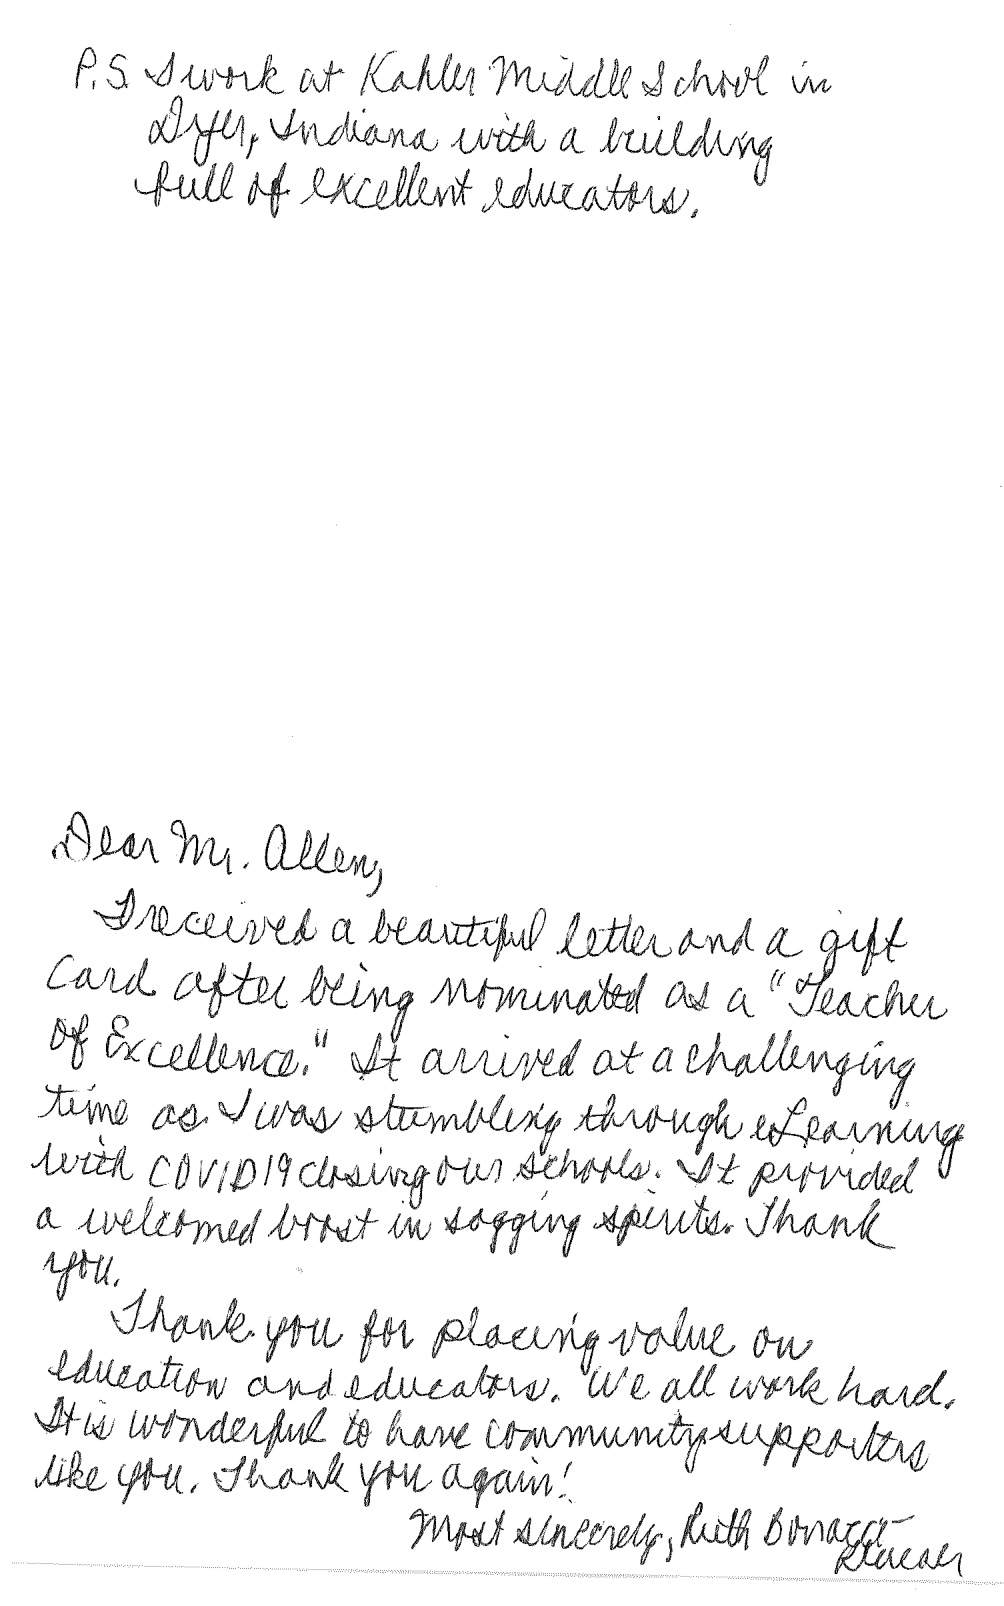 P.S. I work at Kahler Middle School in
Dyer, Indiana with a building
full of excellent educators.
Dear Mr. Allen,
I received a beautiful letter and a gift
card after being nominated as a "Teacher
of Excellence." It arrived at a challenging
time as I was stumbling through eLearning
with COVID19 closing our schools. It provided
a welcomed boost in sagging spirits. Thank
you.
Thank you for placing value on
education and educators. We all work hard.
It is wonderful to have community supporters
like you. Thank you again!
Most sincerely, Ruth